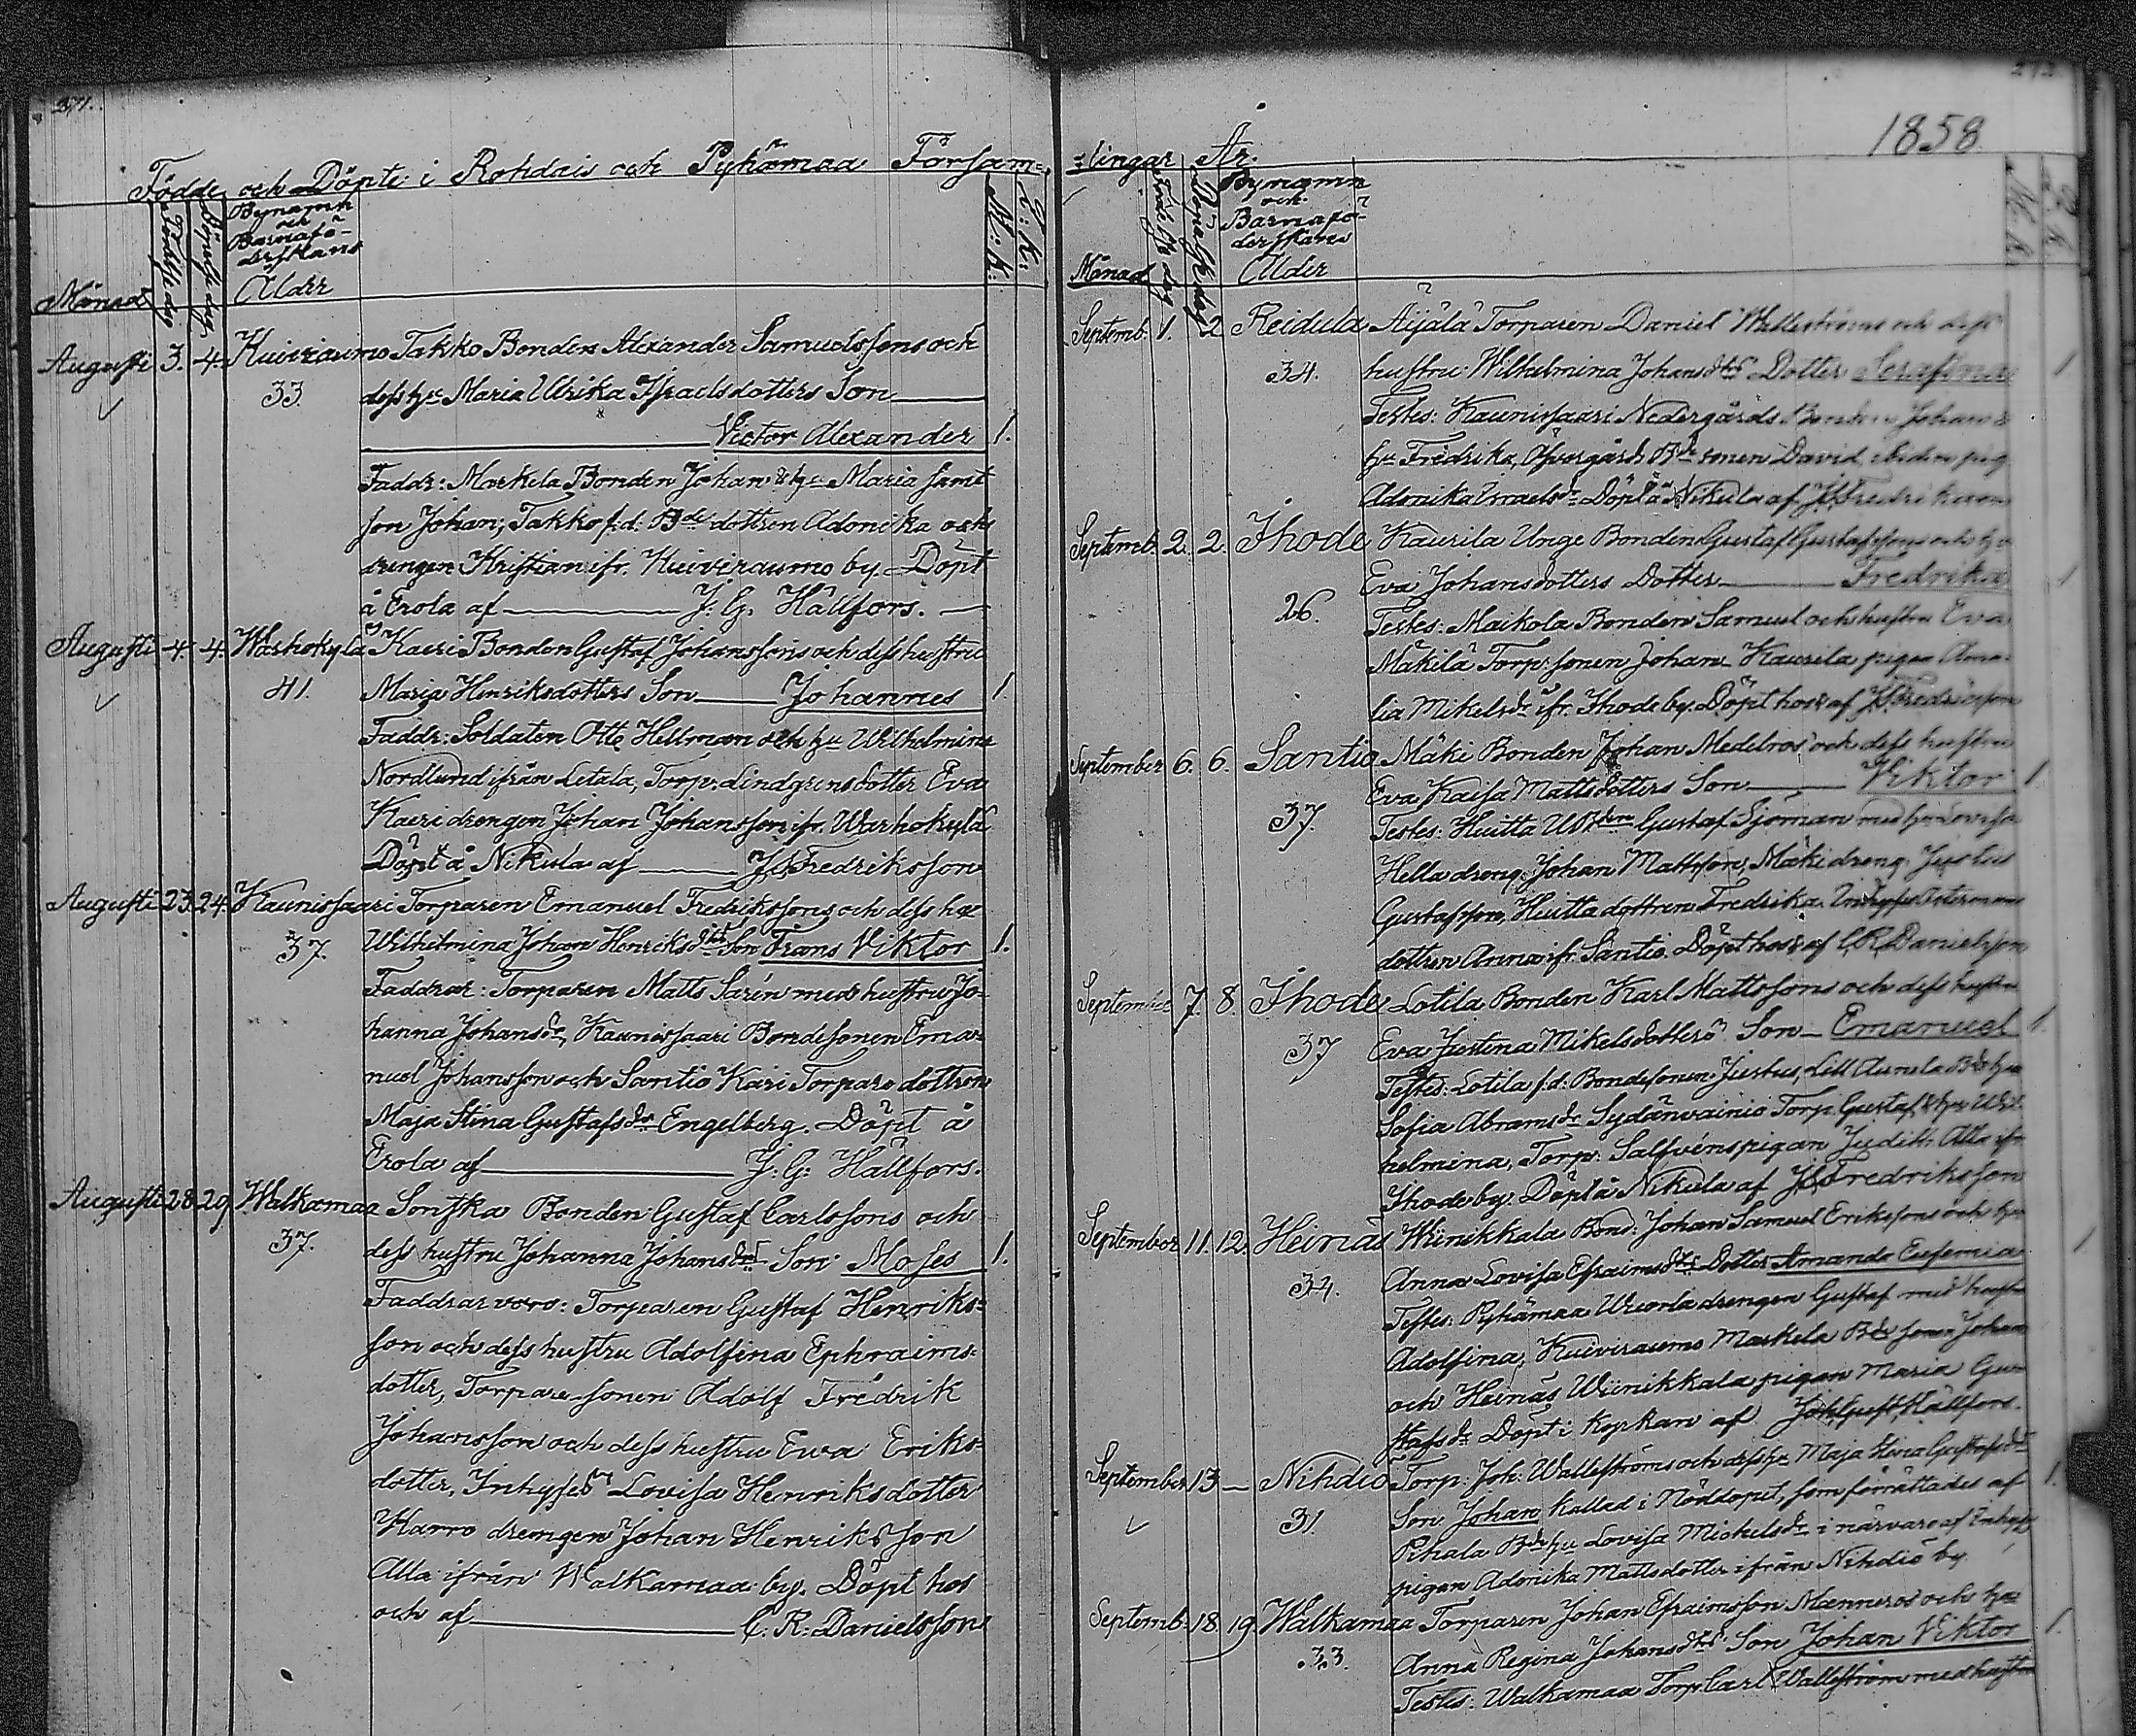 271.
Födde och Döpte i Rohdais och Pyhämaa Försam=
Månad
Födelse dag
Döpelse dag
Bynamn
och
Barnafö-
derskans
Ålder
M: K:
Q: K:
Augusti 3. 4. Kuiviraumo Takko Bonden Alexander Samuelssons och
33. dess hu Maria Ulrika Israelsdotters Son
Victor Alexander 1.
Faddr: Markela Bonden Johan & hu Maria samt
son Johan; Takko f.d. Bde dottren Adonika och
drengen Kristian ifr. Kuiviraumo by. Döpt
å Erola af J. G. Hällfors.
Augusti 4. 4. Warhokylä Kaeri Bonden Gustaf Johanssons och dess hustru
41. Maria Henriksdotters Son Johannes 1.
Faddr: Soldaten Otto Hellman och hu Wilhelmina
Nordlund ifrån Letala, Torp. Lindgrens dotter Eva
Kaeri drengen Johan Johansson ifr. Warhokylä
Döpt å Nikula af J. Fredriksson
Augusti 23. 24. Kaunissaari Torparen Emanuel Fredrikssons och dess hu
37. Wilhelmina Johan Henriksdtrs Son Frans Viktor 1.
Faddrar: Torparen Matts Sarén med hustru Jo-
hanna Johansdr, Kaunissaari Bondesonen Ema-
nuel Johansson och Santio Käri Torpare dottren
Maja Stina Gustafsdr Engelberg. Döpt å
Erola af J: G: Hällfors.
Augusti 28. 29. Walkamaa Sonska Bonden Gustaf Carlssons och
37. dess hustru Johanna Johansdtrs Son Moses 1.
Faddrar voro: Torparen Gustaf Henriks=
son och dess hustru Adolfina Ephraims=
dotter, Torpare sonen Adolf Fredrik
Johansson och dess hustru Ewa Eriks=
dotter, Inhyses Lovisa Henriksdotter
Harro drengen Johan Henriksson
Alla ifrån Walkamaa by. Döpt hos
och af C. R. Danielsson
1858
=lingar År.
Månad
Födelse dag
Döpelse dag
Bynamn
och
Barnafö-
derskans
Ålder
M. K.
Q. K.
Septemb. 1. 2. Reidula Äijälä Torparen Daniel Wallströms och dess
34. hustru Wilhelmina Johansdtrs Dotter Serafina 1
Testes: Kaunissaari Nedergårds Bonden Johan &
hu Fredrika, Öfvergårds Bde sonen David, ibidem pig.
Adonika Israelsdr Döpt å Nikula af J. Fredriksson
Septemb. 2. 2. Ihode Kaurila Unge Bonden Gustaf Gustafssons och hu
Eva Johansdotters Dotter Fredrika 1
26. Testes: Maikola Bonden Samuel och hustru Eva
Mäkilä Torp. sonen Johan Kaurila pigan Ama-
lia Mikelsdr ifr. Ihode by. Döpt hos & af J. Fredriksson
September 6. 6. Santio Mäki Bonden Johan Medelros och dess hustru
Eva Kaisa Mattsdotters Son Viktor 1
37. Testes: Huitta Gustaf Sjöman med hu Lovisa
Hella dreng. Johan Mattsson, Mäki dreng. Justus
Gustafsson, Huitta dottren Fredrika. Inhyses Östermans
dottren Anna ifr Santio. Döpt hos & af C. R. Danielsson
September 7. 8. Ihode Lotila Bonden Karl Mattssons och dess hustru
37 Eva Justina Mikelsdotters Son Emanuel 1.
Testes: Lotila f.d: Bondesonen Justus, Lill Aunela Bde hu
Sofia Abramsdr Sydänvainio Torp. Gustaf & hu Wil-
helmina, Torp. Salfvéns pigan Judith. Alla ifr
Ihode by. Döpt å Nikula af J. Fredriksson
September 11. 12. Heinäs Wiinikkala Bond: Johan Samuel Erikssons och hu
34. Anna Lovisa Efraimsdtrs Dotter Amanda Eufemia 1
Testes: Pyhämaa Wuorla drengen Gustaf med hustru
Adolfina, Kuiviraumo Markela Bde sonen Johan
och Heinäs Wiinikkala pigan Maria Gu-
stafsdr Döpt i Kyrkan af Joh. Gust. Hällfors.
September 13 — Nihdiö Torp: Joh: Wallströms och dess hu Maja Stina Gustafsdtrs
31. Son Johan kallad i Nöddopet, som förrättades af 1.
Pihala Bde hu Lovisa Michelsdr i närvaro af Inhyses
pigan Adonika Mattsdotter ifrån Nihdiö by
Septemb. 18. 19. Walkamaa Torparen Johan Efraimsson Manneros och hu
33. Anna Regina Johansdtrs Son Johan Viktor 1.
Testes: Walkamaa Torp. Carl Wallström med hustru